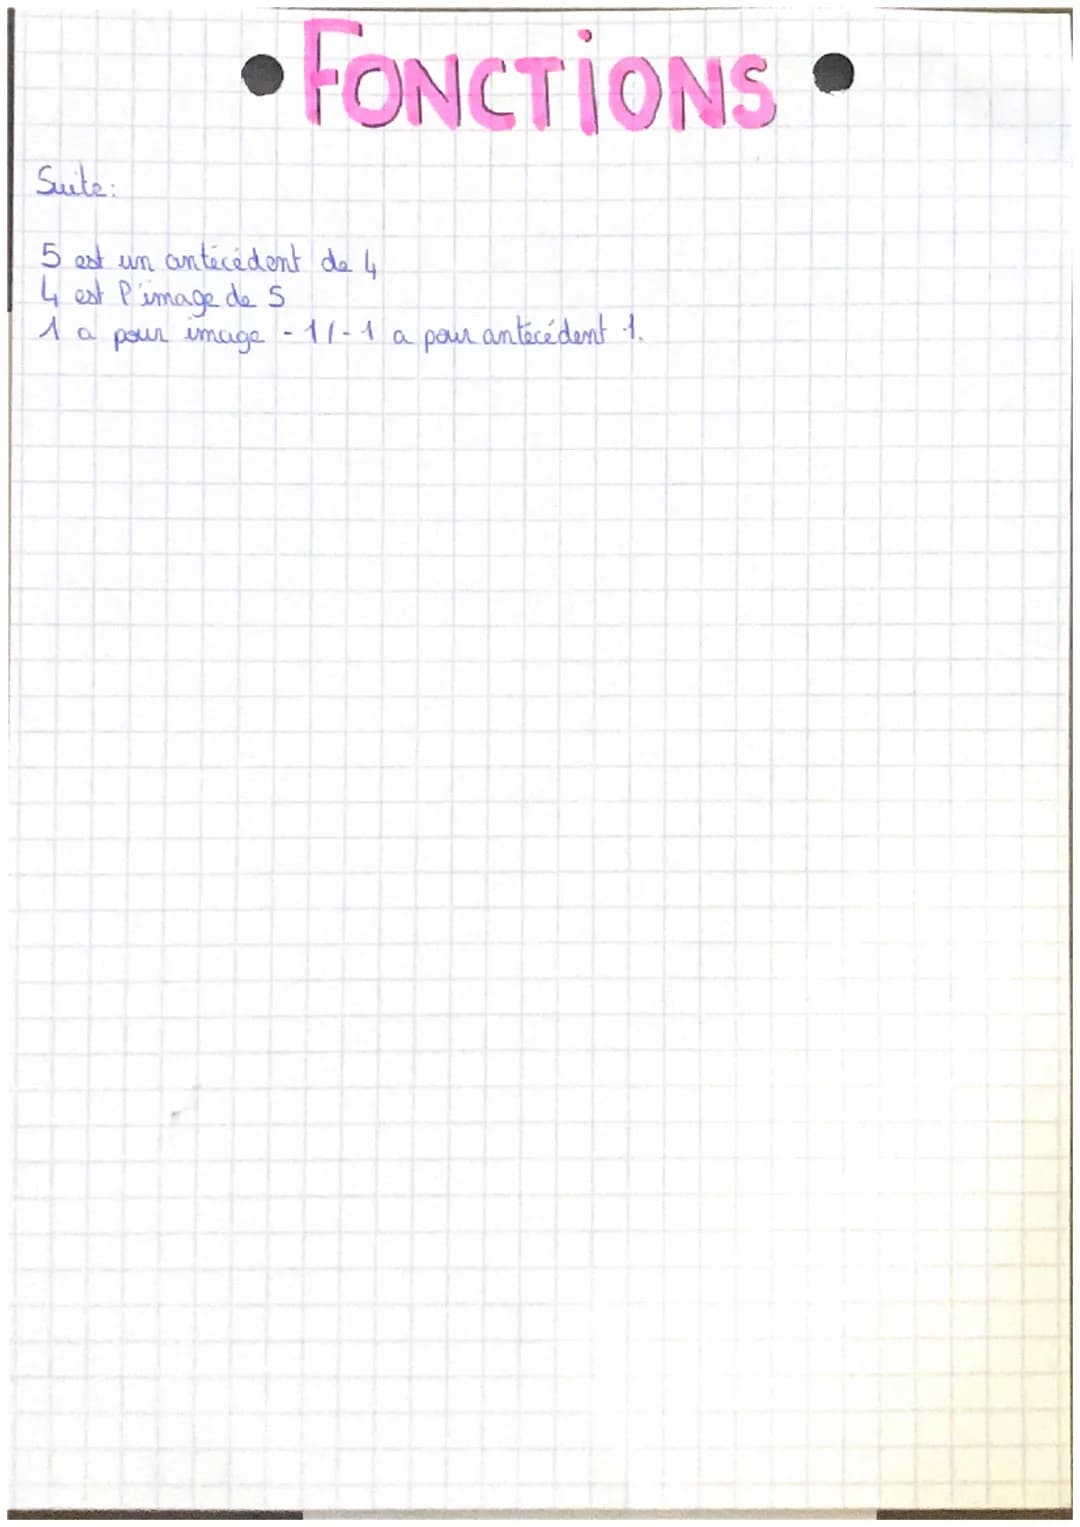 • FONCTIONS •
Suite:
5 est un antécédent de 4
4 est l'image de 5
1 a pour image -1/-1 a pour antécédent 1.